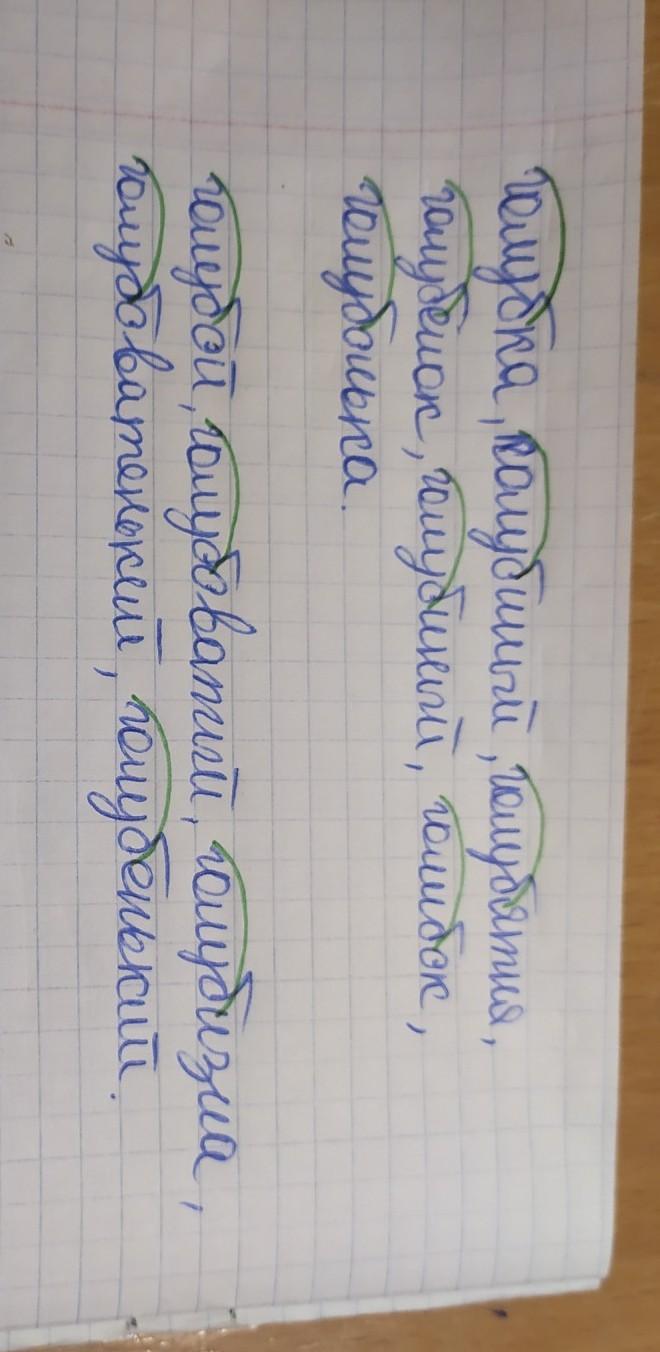 голубка, голубиный, голубятня,
голубешок, голубиный, голибок,
голубонька.
голубой, голубоватый, голубизна,
голубоватенький, голубенький.